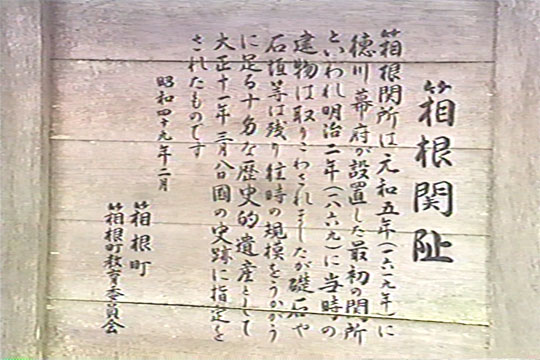 箱根関趾
箱根関所は元和五年(一六一九年)に
徳川幕府が設置した最初の関所
といわれ明治二年(一八六九)に当時の
建物は取りこわされましたが礎石や
石垣等は残り往時の規模をうかがう
に足る十分な歴史的遺産として
大正十一年三月八日国の史跡に指定を
されたものです
昭和四十九年二月
箱根町
箱根町教育委員会